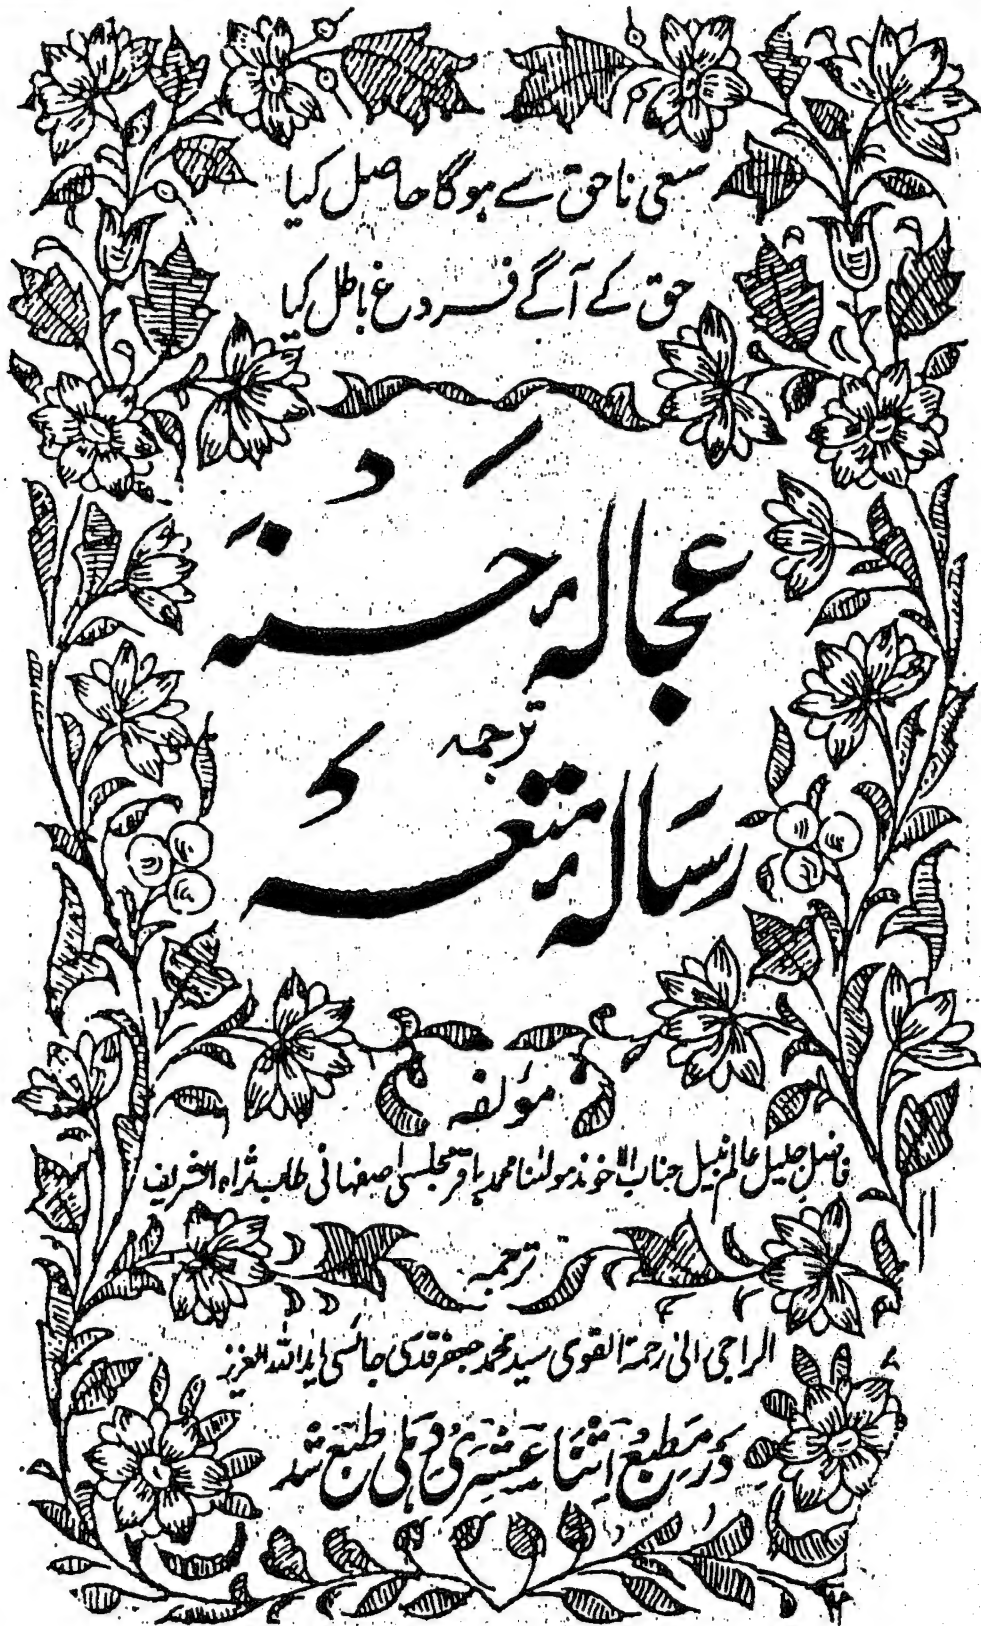 سعی ناحق سے ہوگا حاصل کیا
حق کے آگے فروغ باطل کیا
عجالۂ حسنہ
ترجمہ
رسالۂ متعہ
مؤلفہ
فاضل جلیل عالم نبیل جناب الاخوند مولٰنا محمد باقر مجلسی اصفہانی طاب ثراہ الشریف
ترجمہ
الراجی الی رحمۃ القوی سید محمد جعفر قدسی جائسی ایدہ اللہ العزیز
در مطبع اثنا عشری دہلی طبع شد